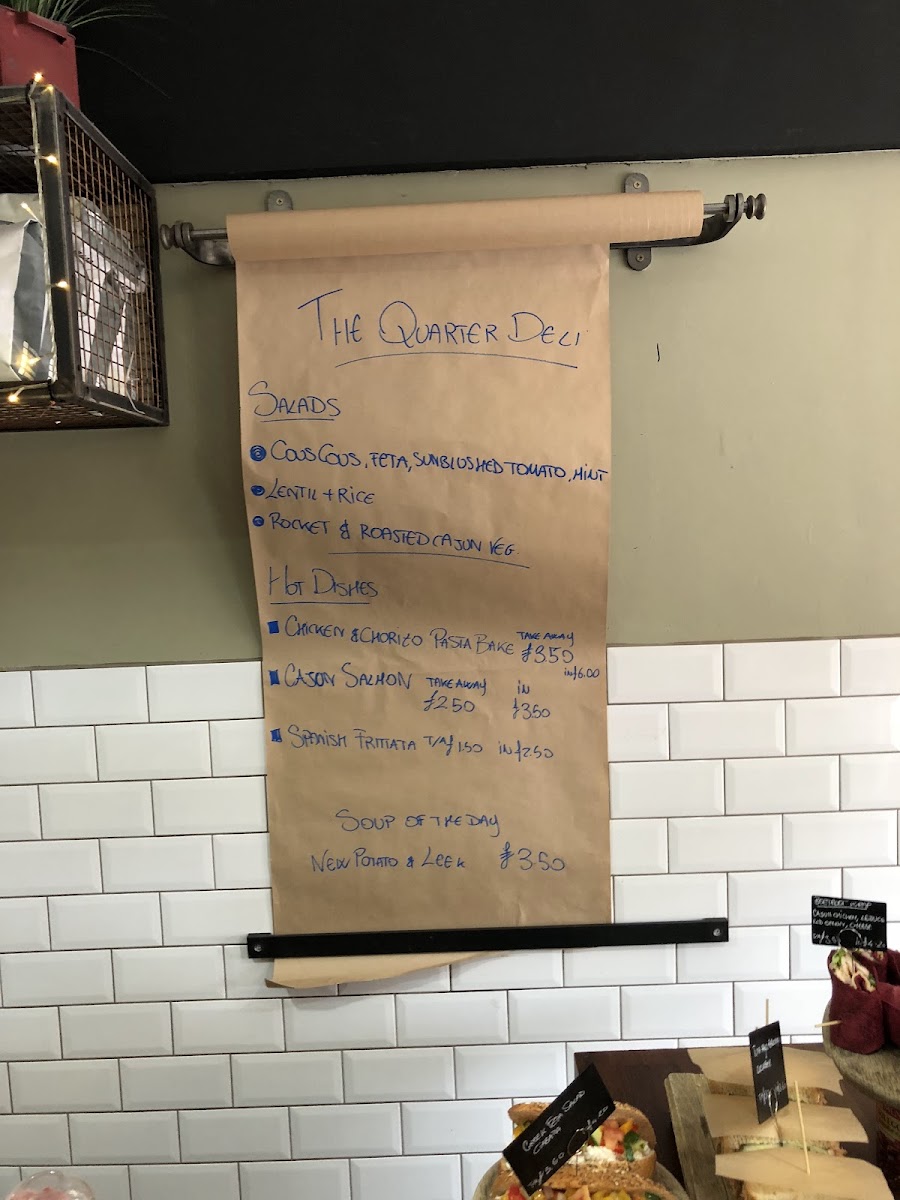 THE QUARTER DELI
SALADS
COUSCOUS, FETA, SUNBLUSHED TOMATO, MINT
LENTIL + RICE
ROCKET & ROASTED CAJUN VEG.
HOT DISHES
CHICKEN & CHORIZO PASTA BAKE TAKE AWAY £3.50
in £6.00
CAJUN SALMON TAKE AWAY in
£2.50 £3.50
SPANISH FRITTATA T/A £1.50 in £2.50
SOUP OF THE DAY
NEW POTATO & LEEK £3.50
CAJUN CHICKEN, LETTUCE
RED ONION, CHEESE
GREEK FETA SALAD
CIABATTA
£3.60